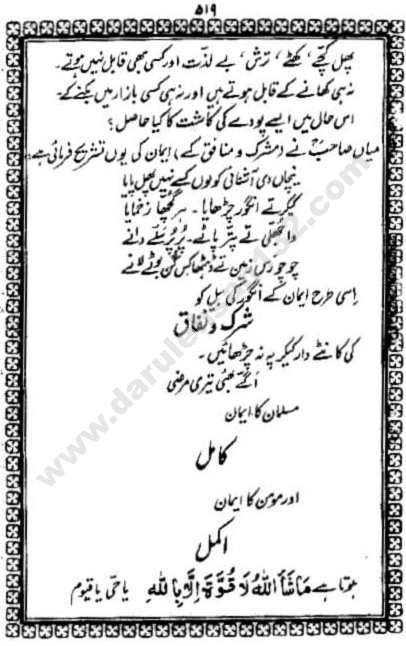 ۵۱۹
پھل کچے، کھٹے، ترش، بے لذت اور کسی بھی قابل نہیں ہوتے۔
نہ ہی کھانے کے قابل ہوتے ہیں اور نہ ہی کسی بازار میں بکنے کے۔
اس حال میں ایسے پودے کی کاشت کا کیا حاصل؟
میاں صاحبؒ نے (مشرک و منافق کے) ایمان کی یوں تشریح فرمائی ہے:
نیچاں دی آشنائی کولوں کسے نہیں پھل پایا
کیکر تے انگور چڑھایا۔ ہر گچھا زخمایا
دانے
چوچورس زمین تے
اسی طرح ایمان کے انگور کی بیل کو
شرک و نفاق
کی کانٹے دار کیکر پہ نہ چڑھائیں۔
اگے بھئی تیری مرضی
مسلمان کا ایمان
کامل
اور مومن کا ایمان
اکمل
ہوتا ہے مَاشَآءَ اللهُ لَا قُوَّةَ اِلَّا بِاللهِ یا حی یا قیوم
www.darulehsan132.com